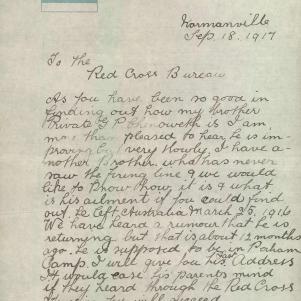 Normanville
Sep. 18. 1917
To the
Red Cross Bureau
As you have been so good in
finding out how my brother
Private G P is I am
more than pleased to hear he is im-
proving but very slowly. I have a-
nother Brother who has never
saw the firing line & we would
like to know how it is & what
is his ailment if you could find
out. he left Australia March 25, 1916
We have heard a rumour that he is
returning but that is about 12 months
ago. He is supposed to be in Parkham
Camp. I will give you his Address
It would ease his parents mind
if they heard through the Red Cross
you will succeed